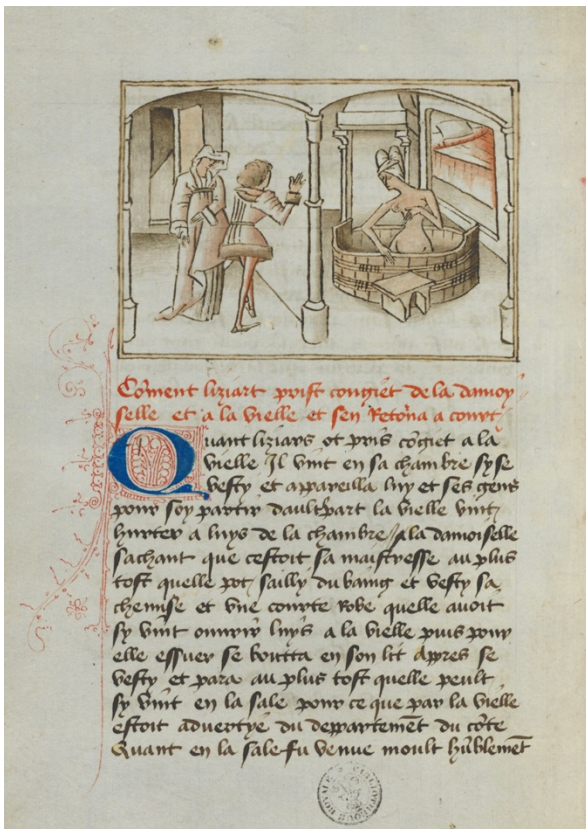 Cõment liziart prist congiet de la damoy
selle et a la vielle et sen Retõna a court
Quant liziars ot pris cõgiet a la
vielle Il vint en sa chambre sy se
vesty et appareilla luy et ses gens
pour soy partir daultpart la vielle vint
hurter a luys de la chambre / la damoiselle
sachant que cestoit sa maistresse au plus
tost quelle pot sailly du baing et vesty sa
chemise et vne courte robe quelle auoit
sy vint ouurir luys a la vielle puis pour
elle essuer se boutta en son lit Appres se
vesty et para au plus tost quelle peult
sy vint en la sale pour ce que par la vielle
estoit aduertye du deppartemẽt du cõte
Quant en la sale fu venue moult hũblemẽt
BIBLIOTHEQUE ROYALE